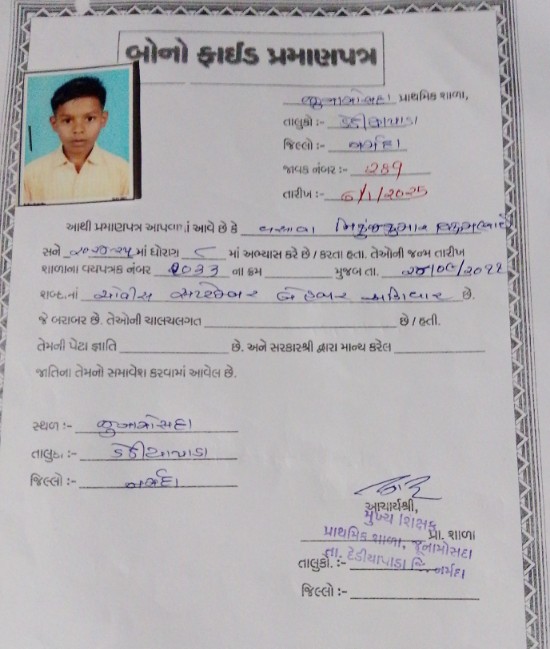 બોનો ફાઈડ પ્રમાણપત્ર
જુનામોસદા પ્રાથમિક શાળા,
તાલુકો :- ડેડીયાપાડા
જિલ્લો :- નર્મદા
જાવક નંબર :- 289
તારીખ :- 6/1/2025
આથી પ્રમાણપત્ર આપવામાં આવે છે કે વસાવા
સને ૨૦૨૪/૨૫ માં ધોરણ ૮ માં અભ્યાસ કરે છે / કરતા હતા. તેઓની જન્મ તારીખ
શાળાના વયપત્રક નંબર ૨૦૩૩ ના ક્રમ મુજબ તા.
શબ્દમાં ચોવીસ સપ્ટેમ્બર બે હજાર અગિયાર છે.
જે બરાબર છે. તેઓની ચાલચલગત છે / હતી.
તેમની પેટા જ્ઞાતિ છે. અને સરકારશ્રી દ્વારા માન્ય કરેલ
જાતિના તેમનો સમાવેશ કરવામાં આવેલ છે.
સ્થળ :- જુનામોસદા
તાલુકા :- ડેડીયાપાડા
જિલ્લો :- નર્મદા
આચાર્યશ્રી,
મુખ્ય શિક્ષક
પ્રા. શાળા
પ્રાથમિક શાળા, જૂનામોસદા
તાલુકો. :- તા. ડેડીયાપાડા જિ. નર્મદા
જિલ્લો :-